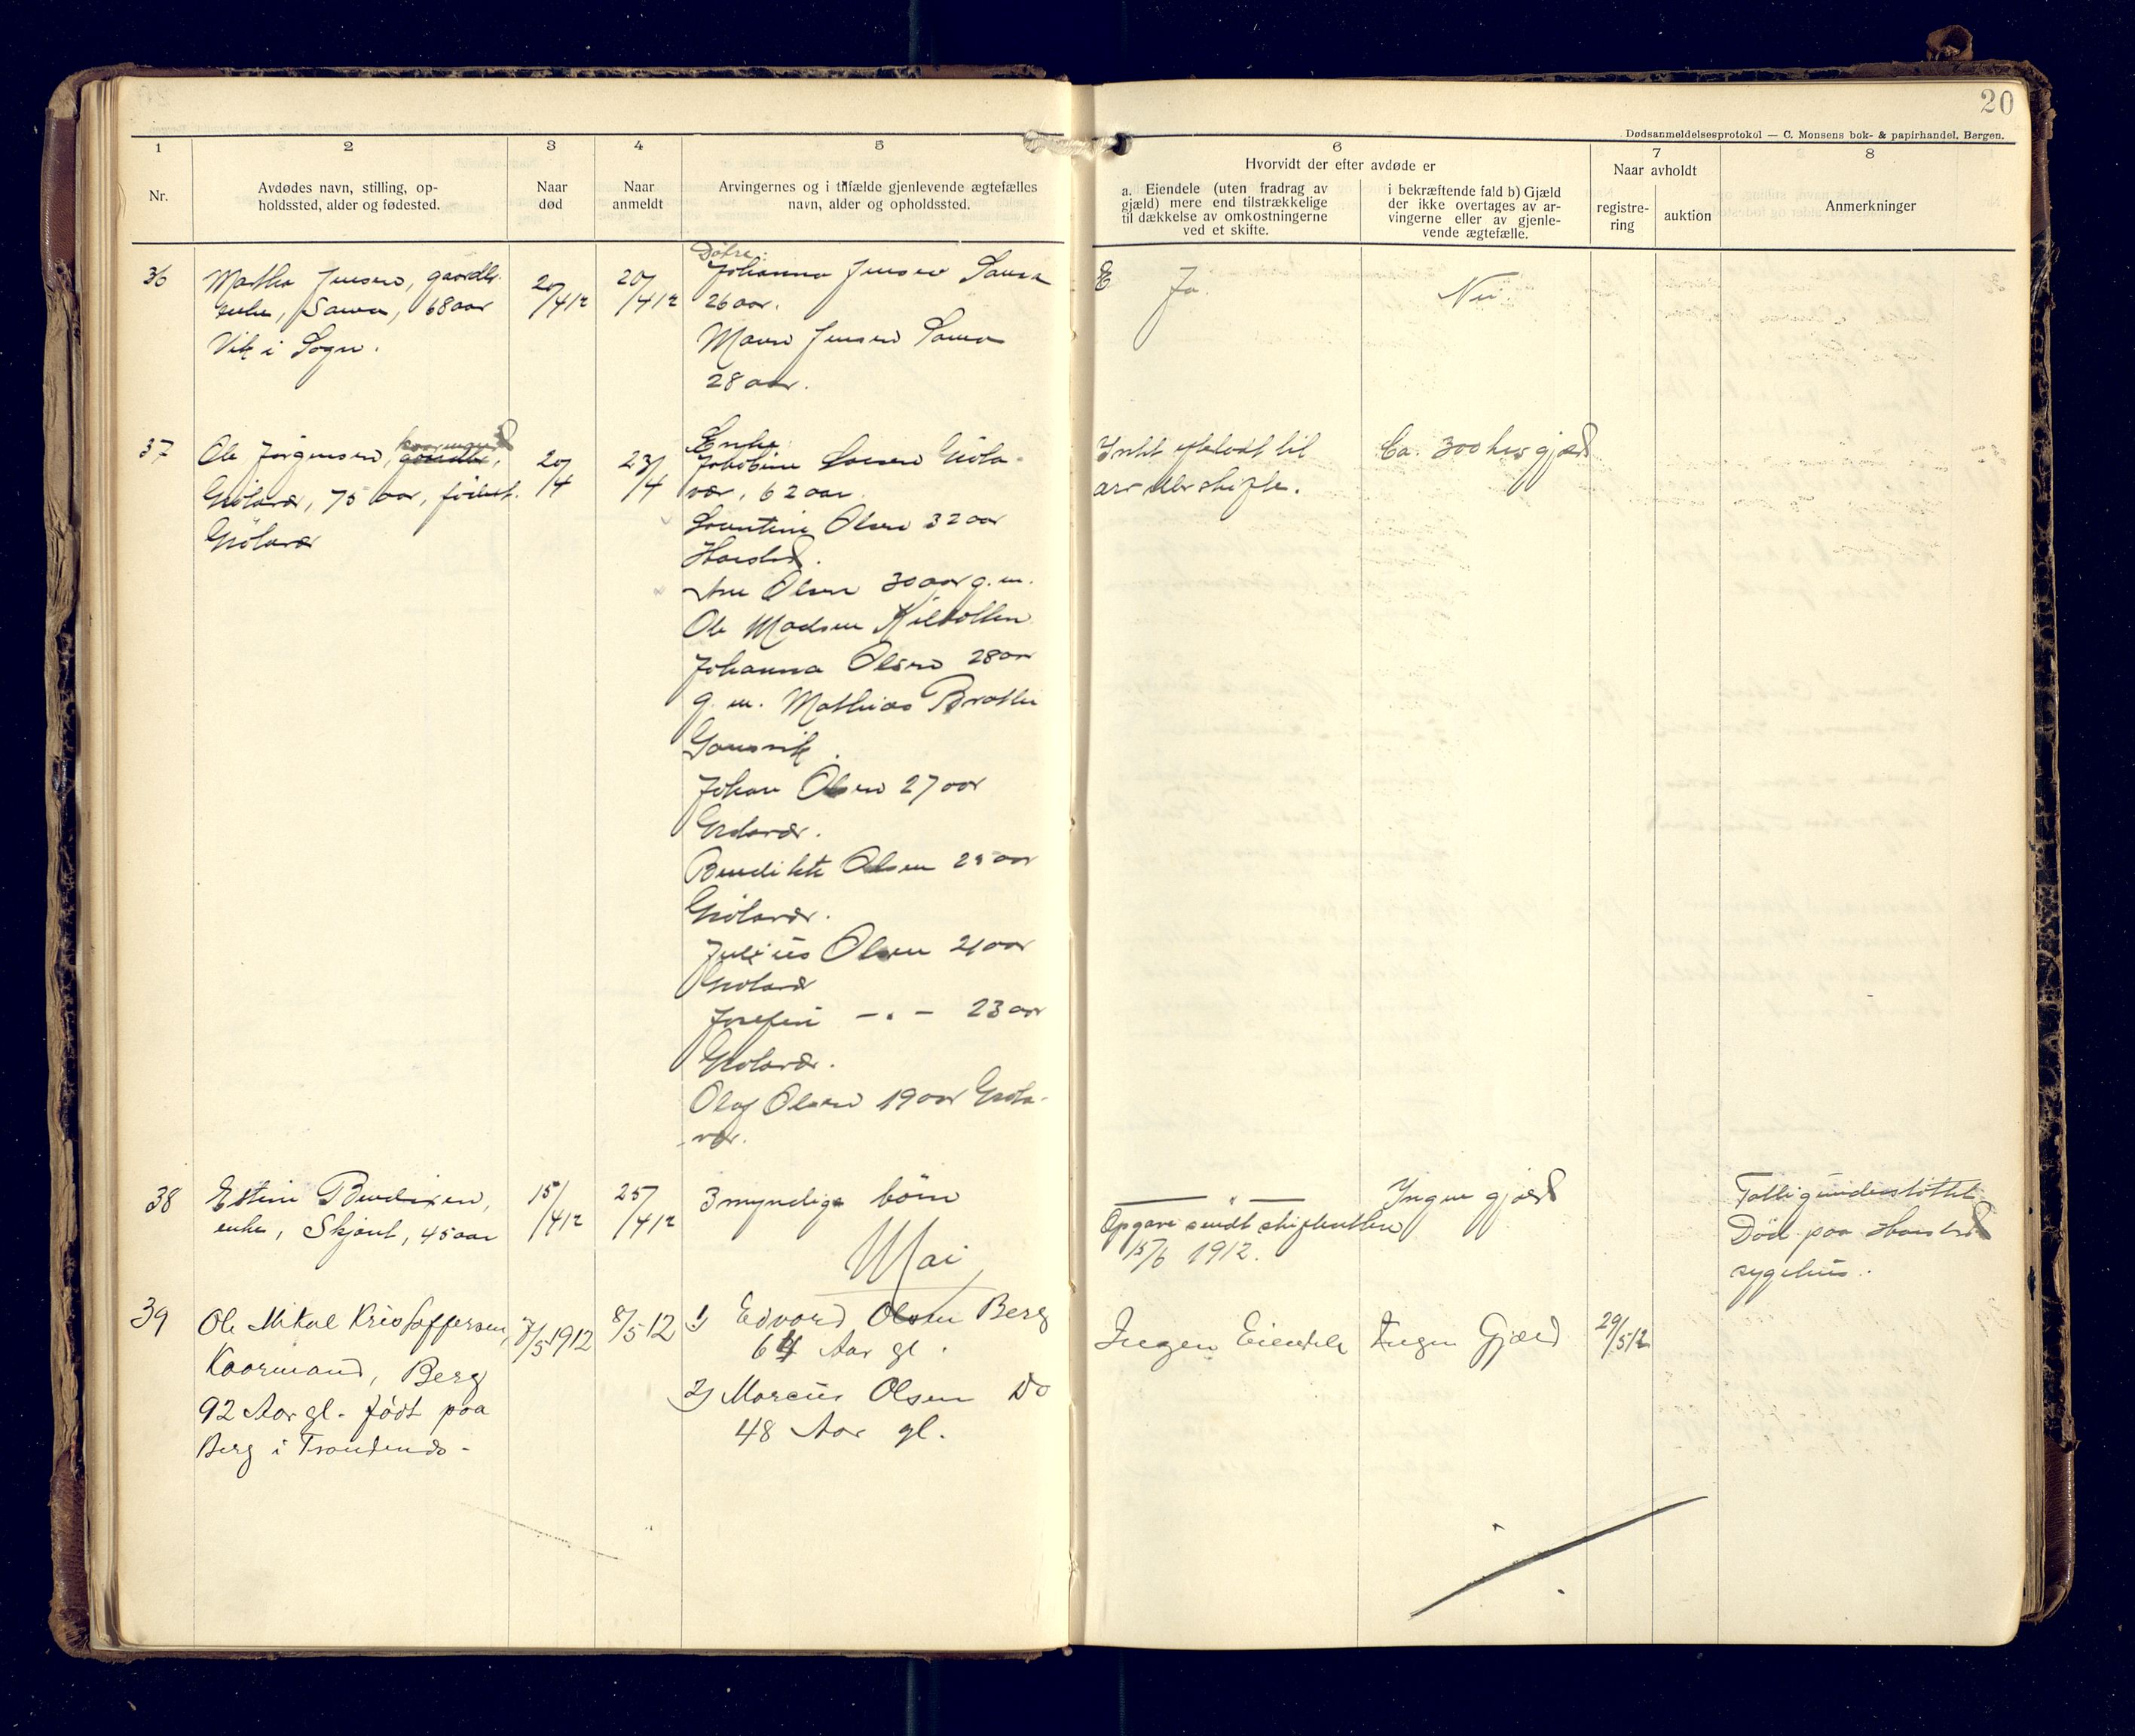 20
Dødsanmeldelsesprotokol — C. Monsens bok- & papirhandel, Bergen.
1
2
3
4
5
6
7
8
Nr.
Avdødes navn, stilling, op-
holdssted, alder og fødested.
Naar
død
Naar
anmeldt
Arvingernes og i tilfælde gjenlevende ægtefælles
navn, alder og opholdssted.
Hvorvidt der efter avdøde er
a. Eiendele (uten fradrag av
gjæld) mere end tilstrækkelige
til dækkelse av omkostningerne
ved et skifte.
i bekræftende fald b) Gjæld
der ikke overtages av ar-
vingerne eller av gjenle-
vende ægtefælle.
Naar avholdt
registre-
ring
auktion
Anmerkninger
36
Martha Jensen, gaardbr.
enke, Sama, 68 aar
Vik i Sogn.
20/4 12
20/4 12
Døtre:
Johanna Jensen Sama
26 aar.
Jensen Sama
28 aar.
Ja.
Nei.
37
Ole Jørgensen, kaarmand
Grötavær, 75 aar, födest.
Grötavær
20/4
23/4
Enke:
Jakobine Gröta-
vær, 62 aar.
Olsen 32 aar
Harstad.
Ane Olsen 30 aar g. m.
Ole Madsen Kilbotten
Johanna Olsen 28 aar
g. m. Mathias
Gausvik.
Johan Olsen 27 aar
Grötavær.
Bendikte Olsen 25 aar
Grötavær.
Julius Olsen 21 aar
Grötavær
Josefine —„— 23 aar
Grötavær.
Olaf Olsen 19 aar Gröta-
vær.
Intet efterladt til
arv eller skifte.
Ca. 300 krs gjæld
38
Estine Bendixen,
enke, 45 aar
15/4 12
25/4 12
3 myndige börn
—„—
Opgave sendt skifteretten
15/6 1912.
Ingen gjæld
Fattigunderstöttet.
Död paa Harstad
sygehus.
Mai
39
Ole Mikal Kristoffersen,
Kaarmand, Berg
92 Aar gl. födt paa
Berg i Trondenæs -
7/5 1912
8/5 12
1) Edvard Olsen Berg
64 Aar gl.
2) Marcus Olsen Do
48 Aar gl.
Ingen Eiendele
Ingen Gjæld
29/5 12